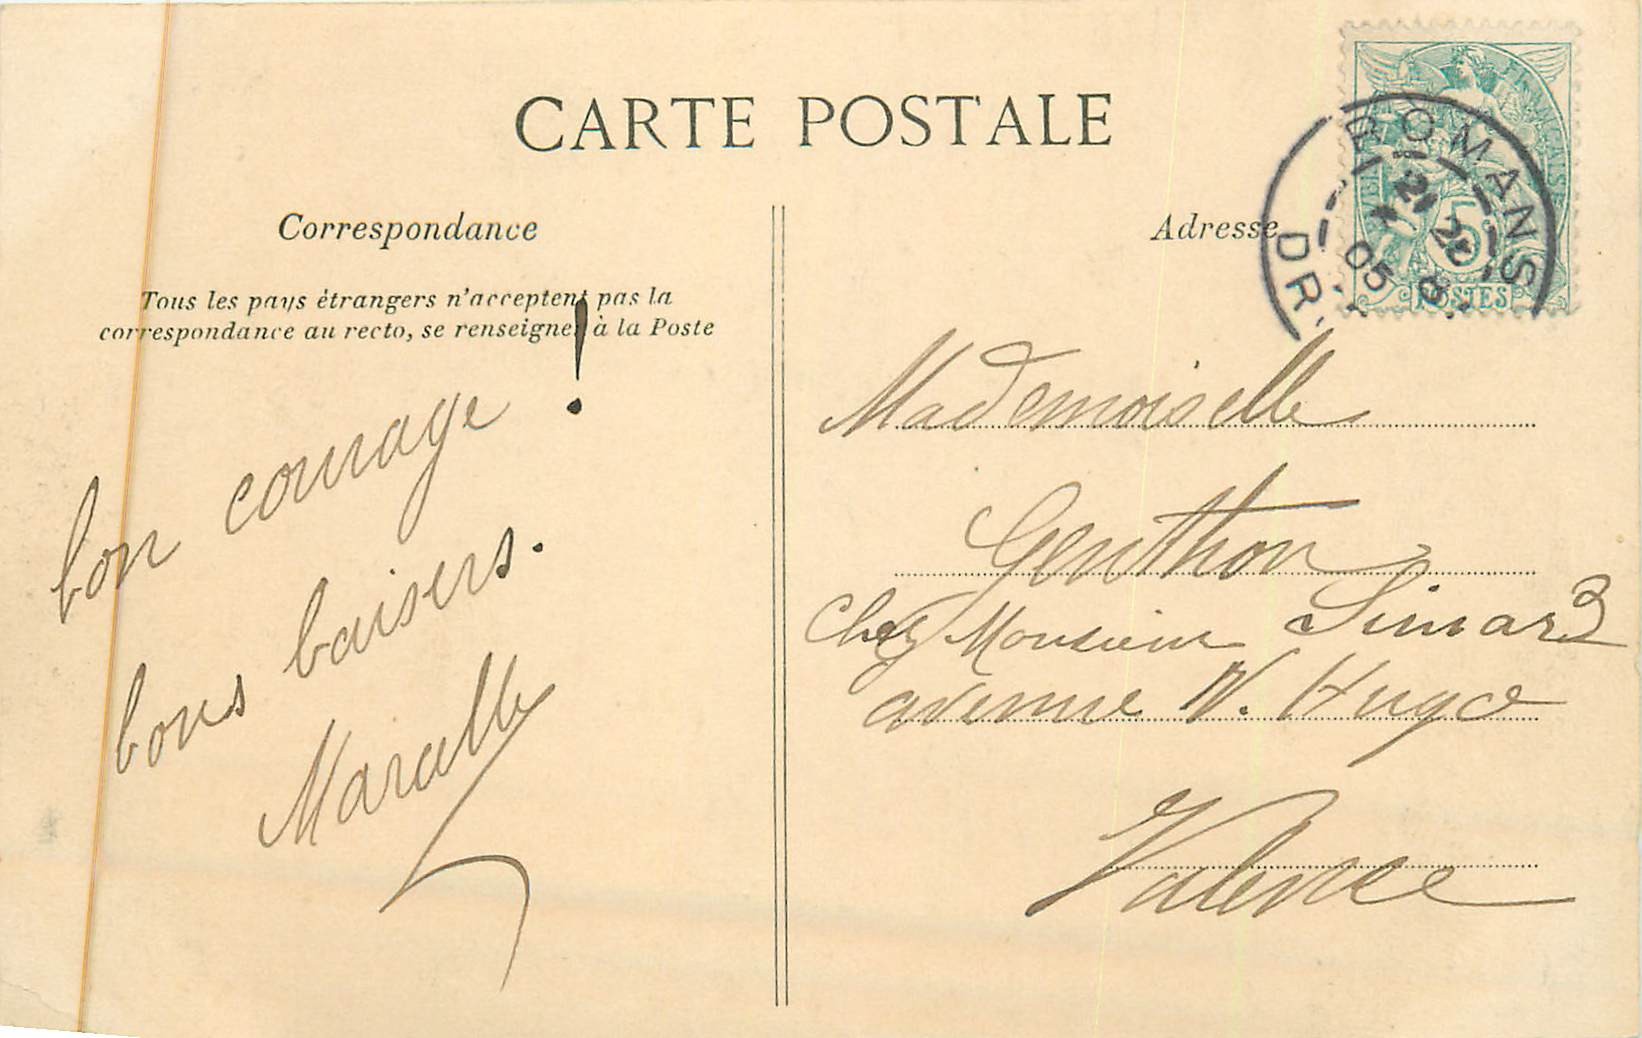 CARTE POSTALE
Correspondance
Tous les pays étrangers n'acceptent pas la
correspondance au recto, se renseigner à la Poste
bon courage !
bons baisers.
Adresse
OMANS
21
05
DR
5
POSTES
Mademoiselle
Genthon
Chez Monsieur Simard
avenue V. Hugo
Valence